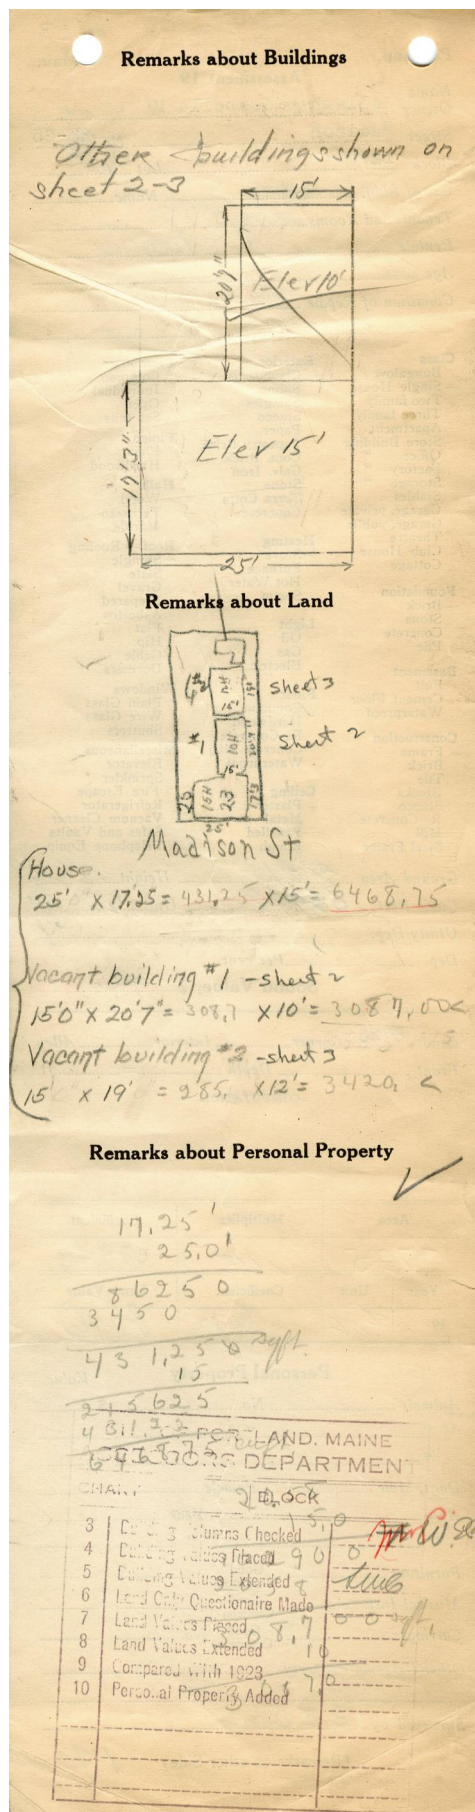 Remarks about Buildings
Other buildings shown on
sheet 2-3
15'
20'7"
Elev 10'
17'3"
Elev 15'
25'
Remarks about Land
#2
12H
15'
19'
sheet 3
#1
10H
15'
Sheet 2
25
15H
23
17'3
25'
Madison St
House.
25' x 17.25 = 431.25 x 15' = 6468.75
Vacant building #1 - sheet 2
15'0" x 20'7" = 308.7 x 10' = 3087.00 <
Vacant building #2 - sheet 3
15' x 19' = 285. x 12' = 3420. <
Remarks about Personal Property
17.25'
25.0'
86250
3450
431.250 sqft.
15
215625
PORTLAND, MAINE
ASSESSORS DEPARTMENT
CHART
BLOCK
15.0
3 Building Columns Checked
4 Building Values Placed
5 Building Values Extended
6 Land Only Questionaire Made
7 Land Values Placed
308.700 sqft.
8 Land Values Extended
10
9 Compared With 1923
10 Personal Property Added